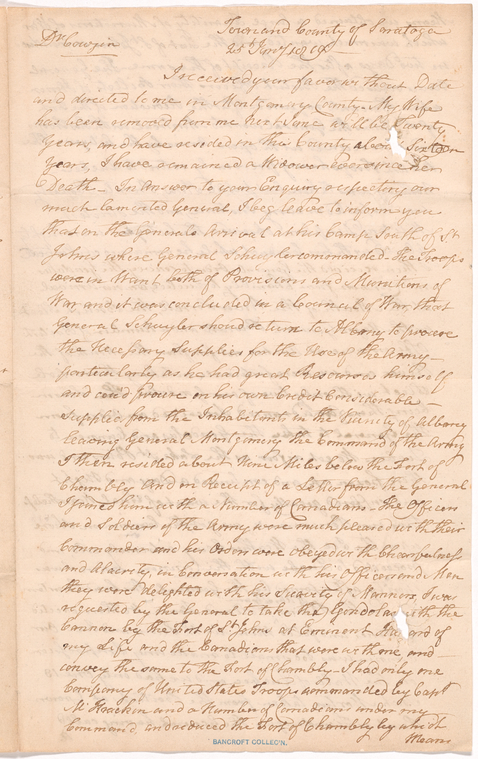 Dr Cowzin
Town and County of Saratoga
25 Jany 1819
I received your favor without Date
and directed to me in Montgomery County – My Wife
has been removed from me next June will be Twenty
Years, and have resided in this County about Sixteen
Years, I have remained a Widower ever since her
Death – In Answer to your Enquiry respecting our
much lamented General, I beg leave to inform you
that on the Generals arrival at his Camp South of St
Johns where General Schuyler commanded – the Troops
were in Want both of Provisions and Munitions of
War and it was concluded in a Council of War, that
General Schuyler should return to Albany to procure
the Necessary Supplies for the Use of the Army –
particularly as he had great Resources himself
and could procure on his own Credit Considerable –
Supplies from the Inhabitants in the County of Albany
leaving General Montgomery the Command of the Army
I then resided about Nine Miles below the Fort of
Chambly and on Receipt of a Letter from the General
I joined him with a Number of Canadians – The Officers
and Soldiers of the Army were much pleased with their
Commander and his Orders were obeyed with Chearfulness
and Alacrity, in Conversation with his Officers and Men
they were delighted with his Suavity of Manners, I was
requested by the General to take the Gondolas with the
Cannon by the Fort of St Johns at Eminent Hazard of
my Life and the Canadians that were with me and
convey the same to the Fort of Chambly – I had only one
Company of United States Troops commanded by Capt
Mc Krackin and a Number of Canadians under my
Command, and reduced the Fort of Chambly by which
Means
BANCROFT COLLEC'N.